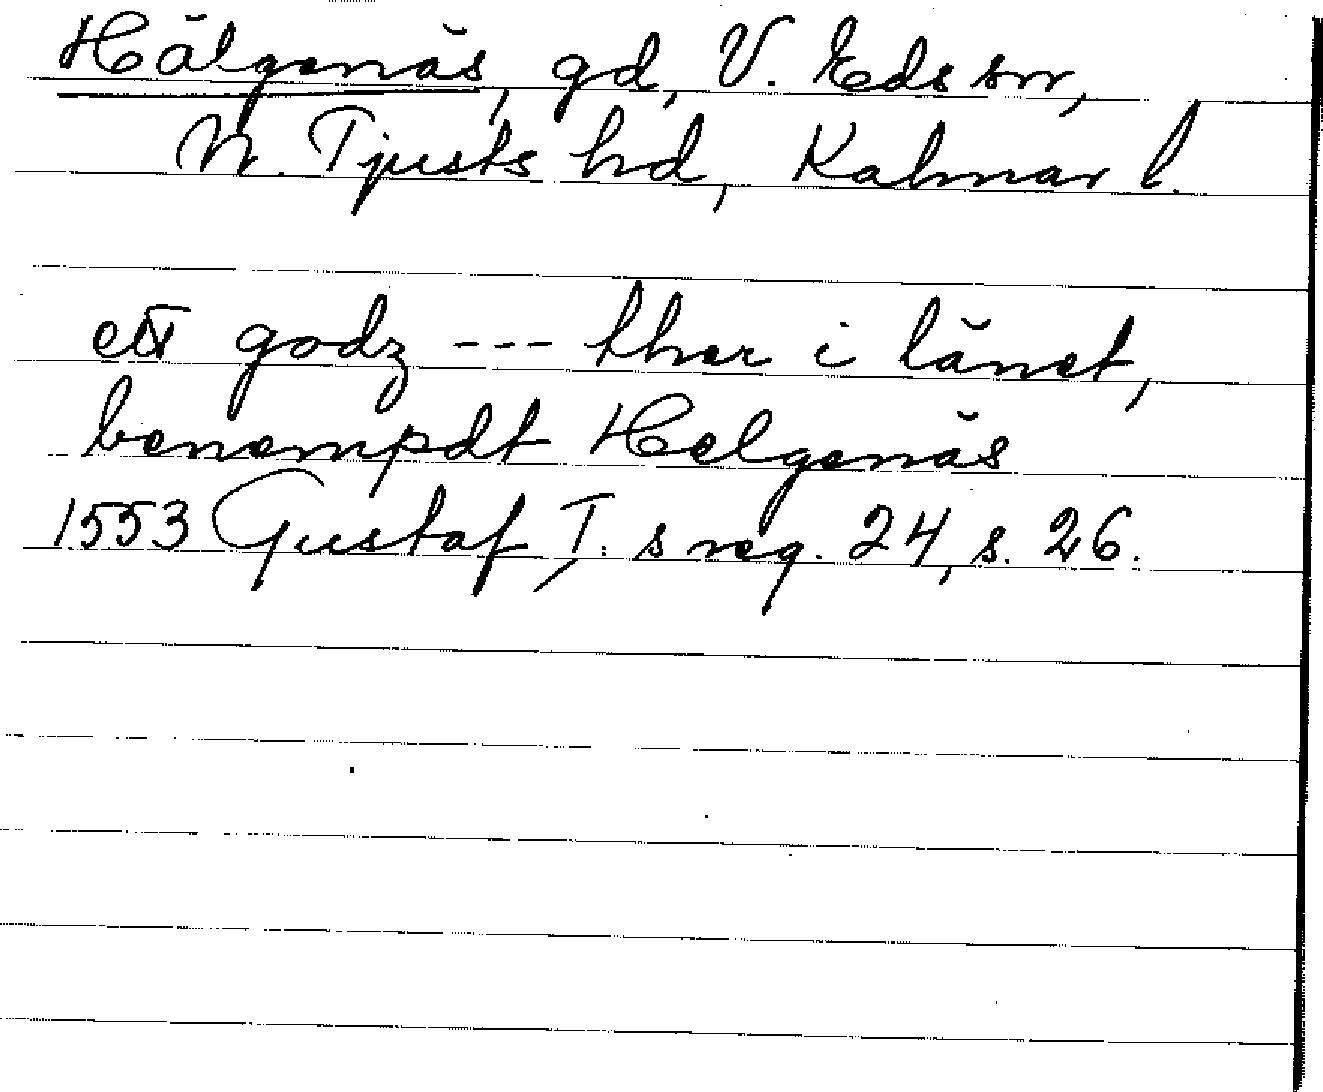 Hälgenäs, gd, V. Eds sn,
N. Tjusts hd, Kalmar l.
ett godz --- ther i länet,
benempdt Helgenäs
1553 Gustaf I:s reg. 24, s. 26.